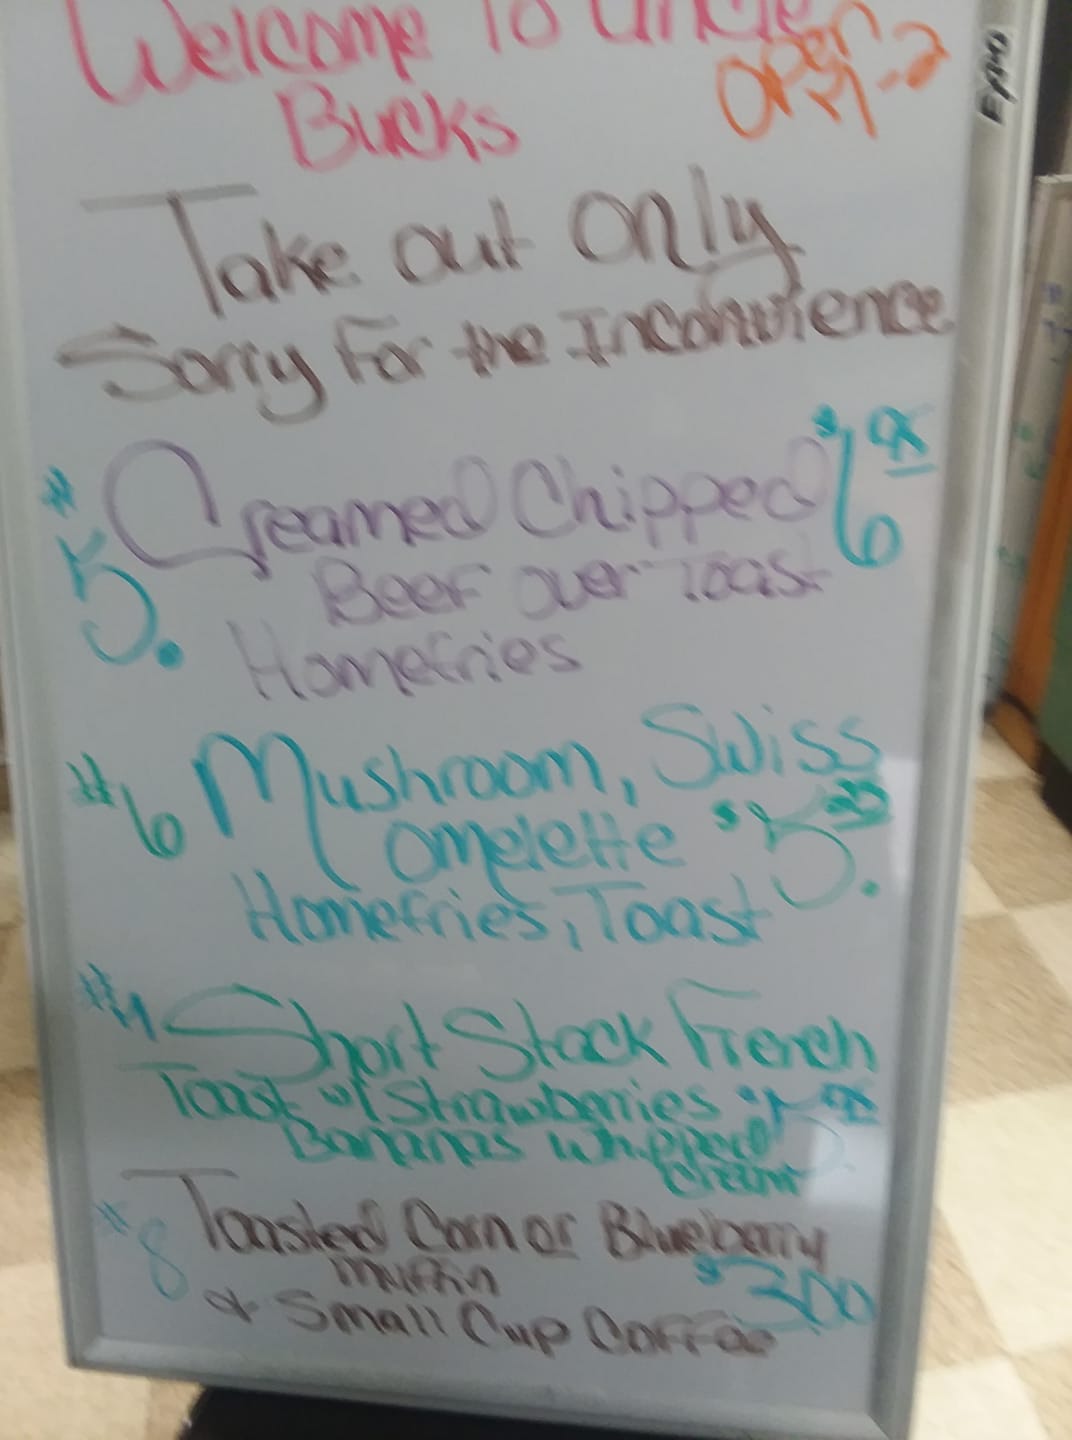 Welcome To Uncle
Bucks
Open
7-2
Take out only
Sorry For the Inconvience
#5. Creamed Chipped $6.95
Beef over Toast
Homefries
#6 Mushroom, Swiss
omelette $5.
Homefries, Toast
Short Stack French
Toast w/ Strawberries $5.95
Bananas Whipped
Cream
#8 Toasted Corn or Blueberry
Muffin $3.00
& Small Cup Coffee
Expo